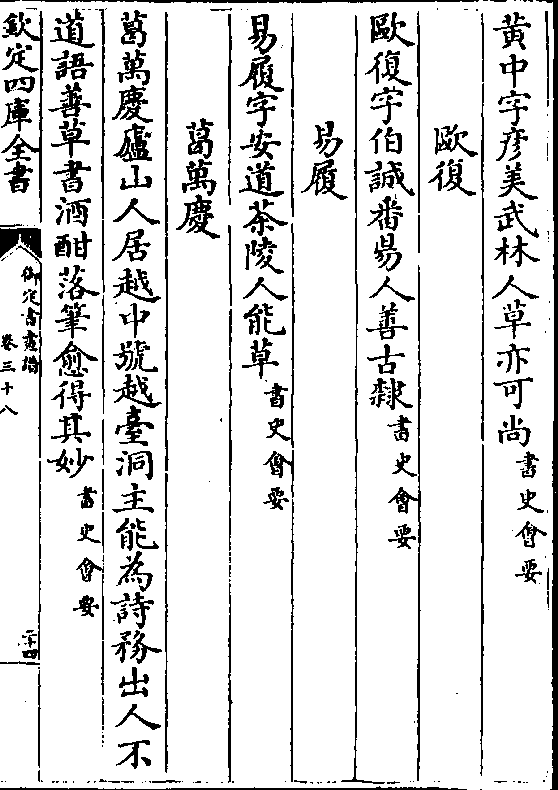 黄中字彦美武林人草亦可尚書史會要
歐復
歐復字伯誠番昜人善古隸書史會要
易履
易履字安道茶陵人能草書史會要
葛萬慶
葛萬慶廬山人居越中號越臺洞主能為詩務出人不
道語善草書酒酣落筆愈得其妙書史會要
欽定四庫全書
御定書畫譜
卷三十八
二十四